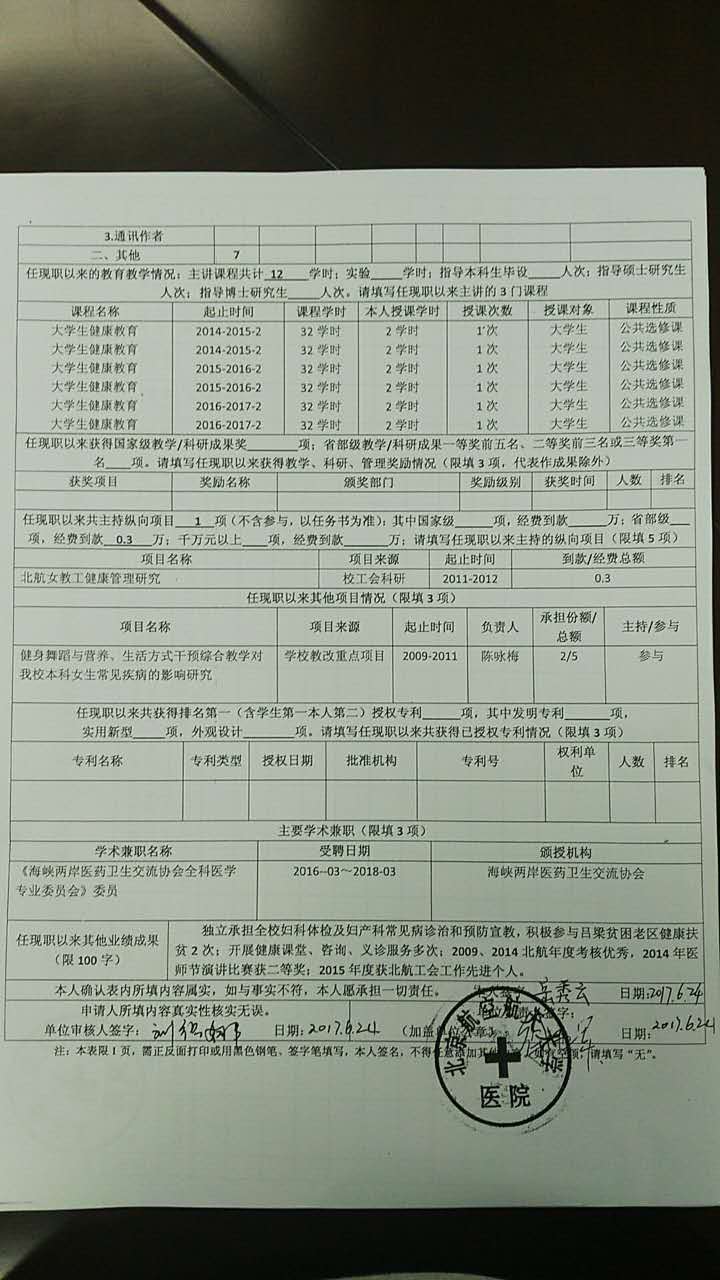 3.通讯作者
二、其他 7
任现职以来的教育教学情况：主讲课程共计 12 学时；实验____学时；指导本科生毕设____人次；指导硕士研究生
____人次；指导博士研究生____人次。请填写任现职以来主讲的3门课程
课程名称 起止时间 课程学时 本人授课学时 授课次数 授课对象 课程性质
大学生健康教育 2014-2015-2 32学时 2学时 1次 大学生 公共选修课
大学生健康教育 2014-2015-2 32学时 2学时 1次 大学生 公共选修课
大学生健康教育 2015-2016-2 32学时 2学时 1次 大学生 公共选修课
大学生健康教育 2015-2016-2 32学时 2学时 1次 大学生 公共选修课
大学生健康教育 2016-2017-2 32学时 2学时 1次 大学生 公共选修课
大学生健康教育 2016-2017-2 32学时 2学时 1次 大学生 公共选修课
任现职以来获得国家级教学/科研成果奖____项；省部级教学/科研成果一等奖前五名、二等奖前三名或三等奖第一
名____项。请填写任现职以来获得教学、科研、管理奖励情况（限填3项，代表作成果除外）
获奖项目 奖励名称 颁奖部门 奖励级别 获奖时间 人数 排名
任现职以来共主持纵向项目 1 项（不含参与，以任务书为准）：其中国家级____项，经费到款____万；省部级____
项，经费到款 0.3 万；千万元以上____项，经费到款____万；请填写任现职以来主持的纵向项目（限填5项）
项目名称 项目来源 起止时间 到款/经费总额
北航女教工健康管理研究 校工会科研 2011-2012 0.3
任现职以来其他项目情况（限填3项）
项目名称 项目来源 起止时间 负责人 承担份额/总额 主持/参与
健身舞蹈与营养、生活方式干预综合教学对 学校教改重点项目 2009-2011 陈咏梅 2/5 参与
我校本科女生常见疾病的影响研究
任现职以来共获得排名第一（含学生第一本人第二）授权专利____项，其中发明专利____项，
实用新型____项，外观设计____项。请填写任现职以来共获得已授权专利情况（限填3项）
专利名称 专利类型 授权日期 批准机构 专利号 权利单位 人数 排名
主要学术兼职（限填3项）
学术兼职名称 受聘日期 颁授机构
《海峡两岸医药卫生交流协会全科医学 2016--03～2018-03 海峡两岸医药卫生交流协会
专业委员会》委员
任现职以来其他业绩成果
（限100字）
独立承担全校妇科体检及妇产科常见病诊治和预防宣教，积极参与吕梁贫困老区健康扶
贫2次；开展健康课堂、咨询、义诊服务多次；2009、2014北航年度考核优秀，2014年医
师节演讲比赛获二等奖；2015年度获北航工会工作先进个人。
本人确认表内所填内容属实，如与事实不符，本人愿承担一切责任。 日期:2017.6.24
申请人所填内容真实性核实无误。
单位审核人签字： 日期：2017.6.24 （加盖单位公章） 日期：2017.6.24
注：本表限1页，需正反面打印或用黑色钢笔、签字笔填写，本人签名，不得 请填写“无”。
北京航空航天大学
医院